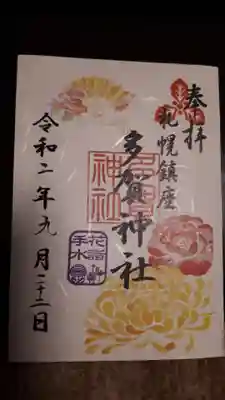 奉拝
札幌鎮座
多賀神社
多賀
神社
花手水
令和二年九月二十二日